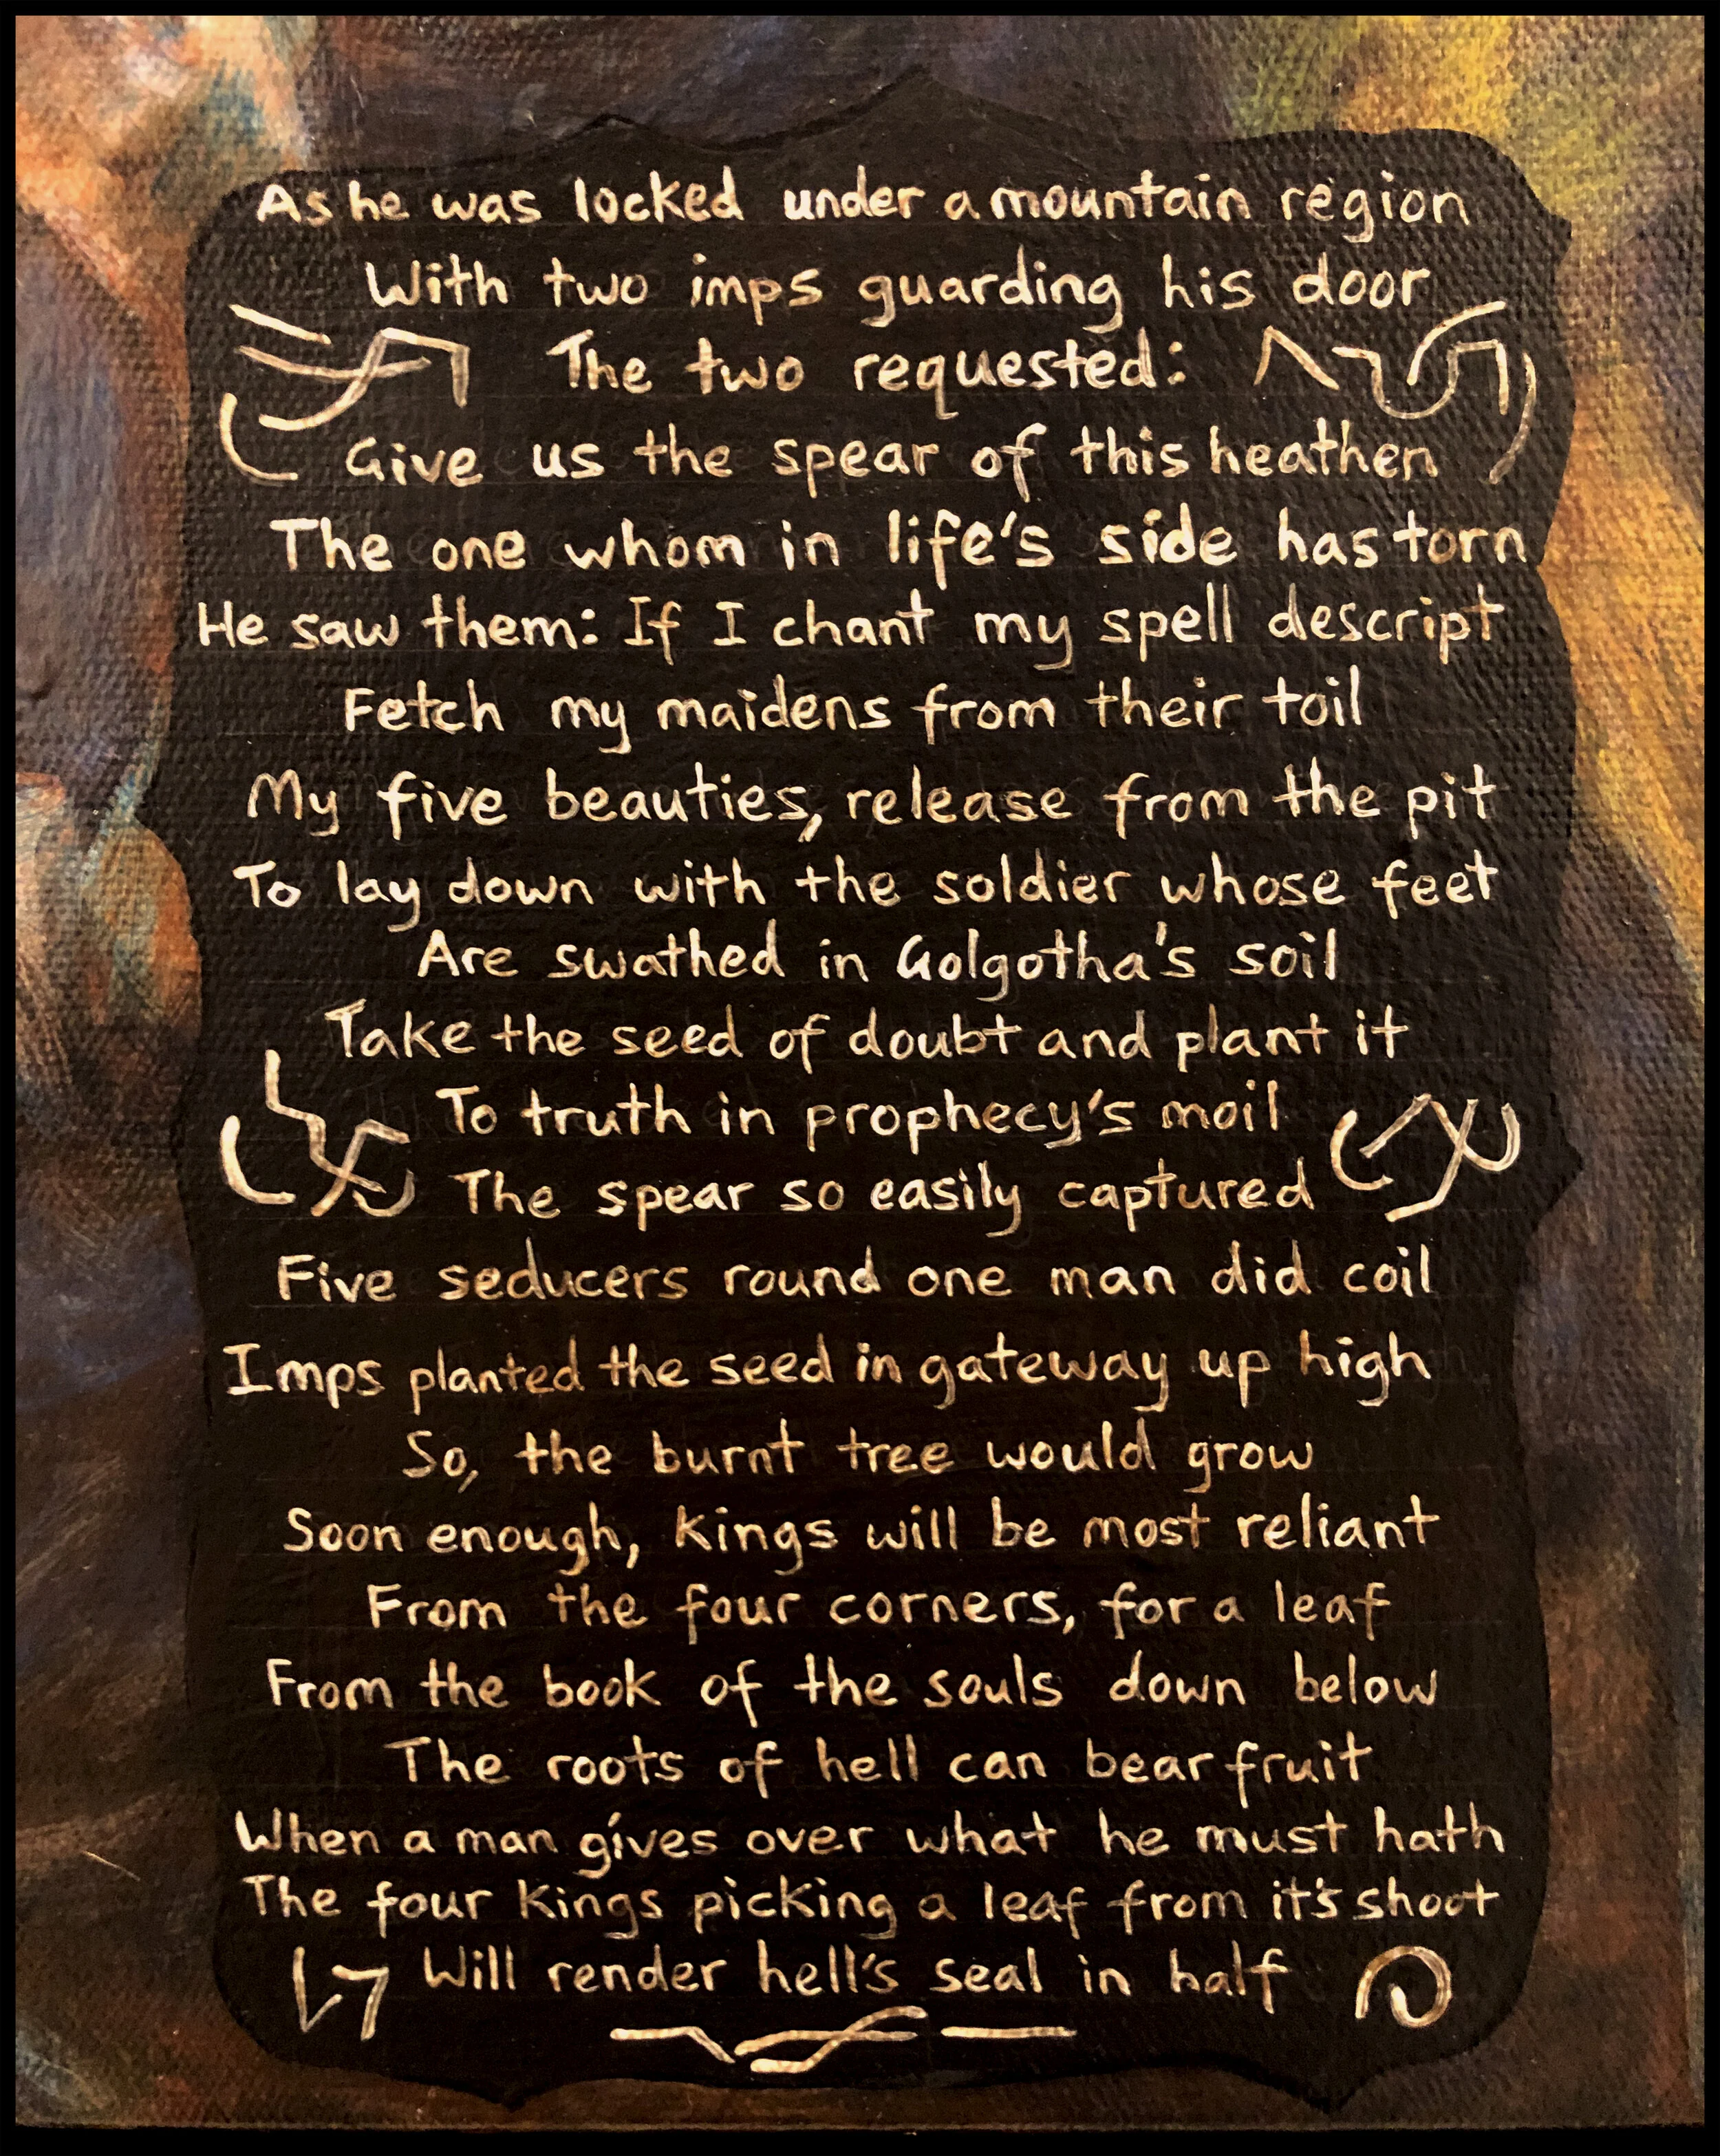 As he was locked under a mountain region
With two imps guarding his door
The two requested:
Give us the spear of this heathen
The one whom in life's side has torn
He saw them: If I chant my spell descript
Fetch my maidens from their toil
My five beauties, release from the pit
To lay down with the soldier whose feet
Are swathed in Golgotha's soil
Take the seed of doubt and plant it
To truth in prophecy's moil
The spear so easily captured
Five seducers round one man did coil
Imps planted the seed in gateway up high
So, the burnt tree would grow
Soon enough, Kings will be most reliant
From the four corners, for a leaf
From the book of the souls down below
The roots of hell can bear fruit
When a man gives over what he must hath
The four Kings picking a leaf from it's shoot
Will render hell's seal in half